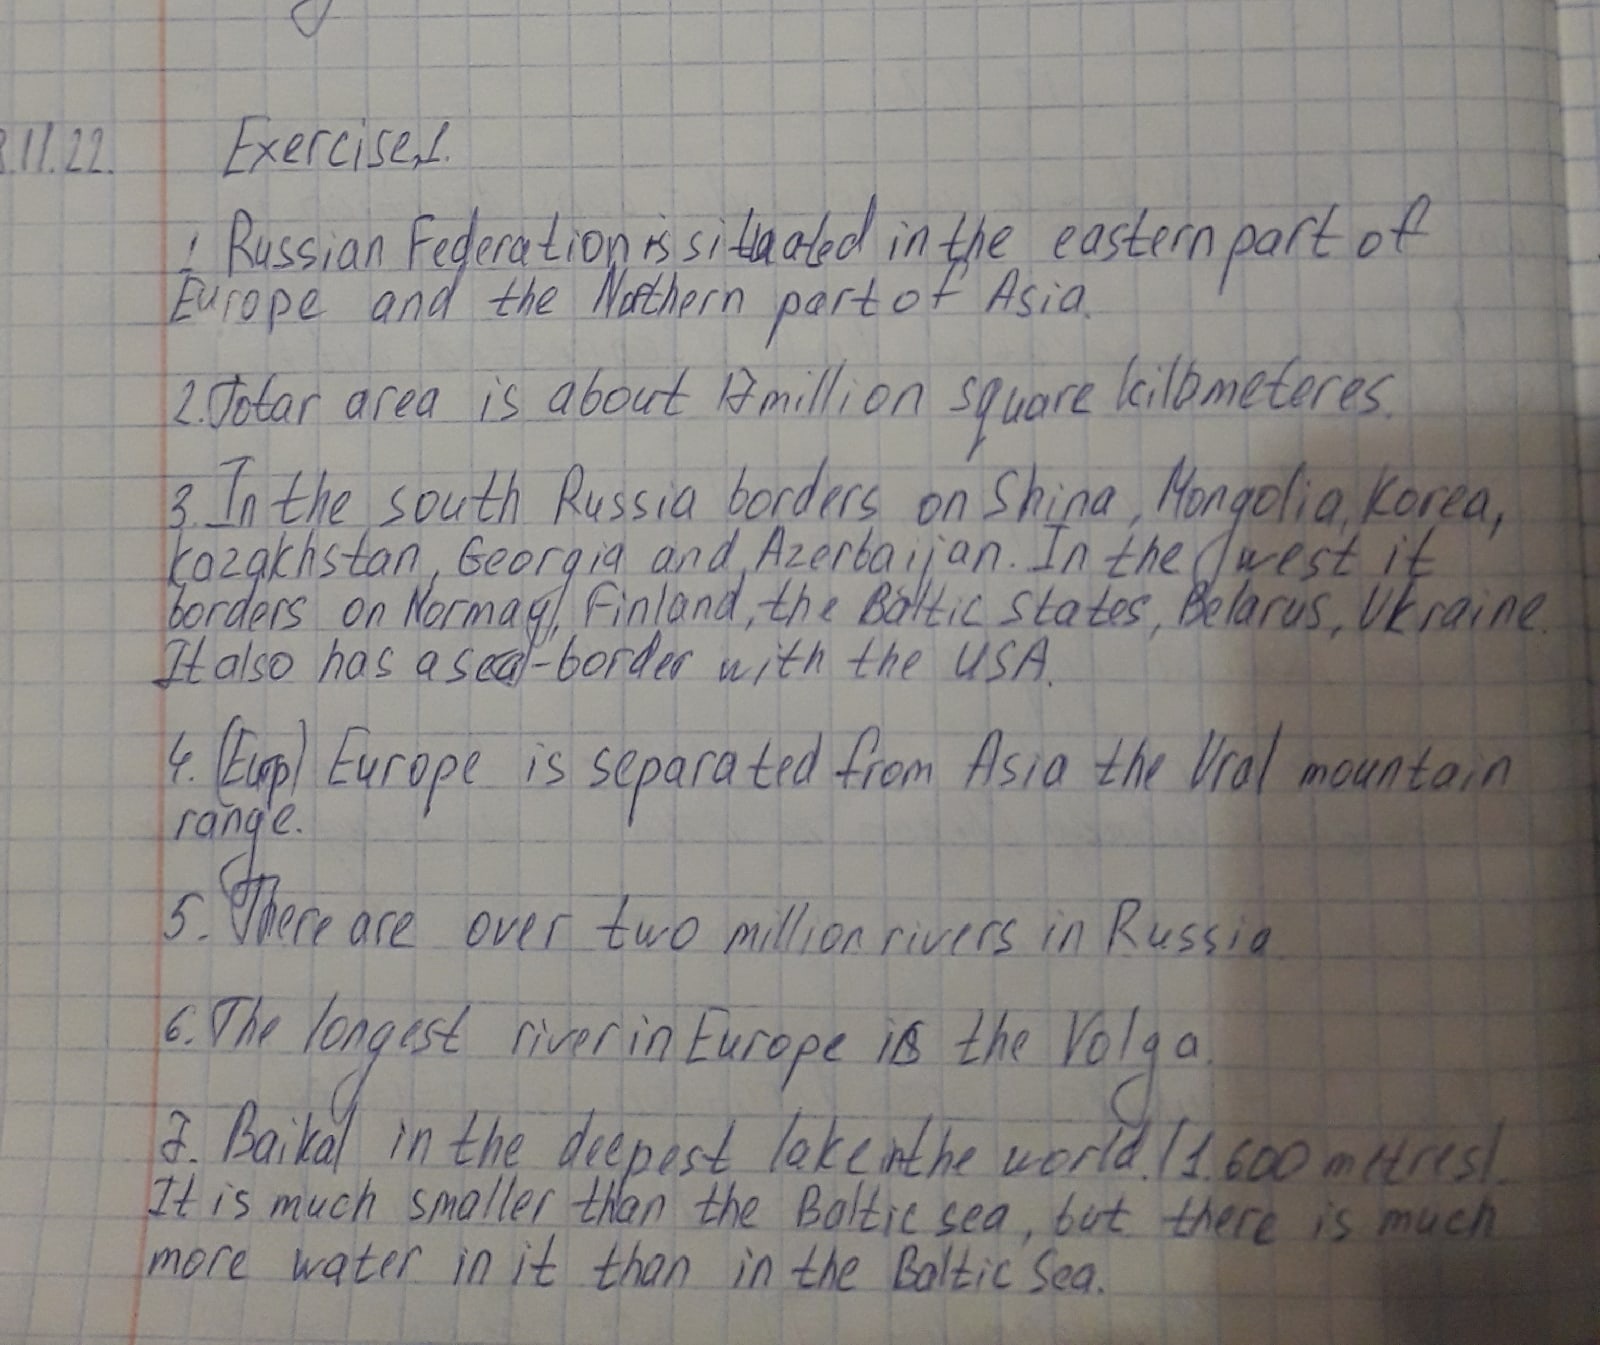 .11.22. Exercise 1.
1 Russian Federation is situated in the eastern part of
Europe and the Nothern part of Asia.
2. Totar area is about 17 million square kilometeres.
3. In the south Russia borders on Shina, Mongolia, Korea,
Kazakhstan, Georgia and Azerbaijan. In the west it
borders on Normay, Finland, the Baltic States, Belarus, Ukraine.
It also has a sea-border with the USA.
4. (Eurp) Europe is separated from Asia the Ural mountain
range.
5. There are over two million rivers in Russia
6. The longest river in Europe is the Volga.
7. Baikal in the deepest lake in the world. (1.600 metres).
It is much smaller than the Baltic sea, but there is much
more water in it than in the Baltic Sea.